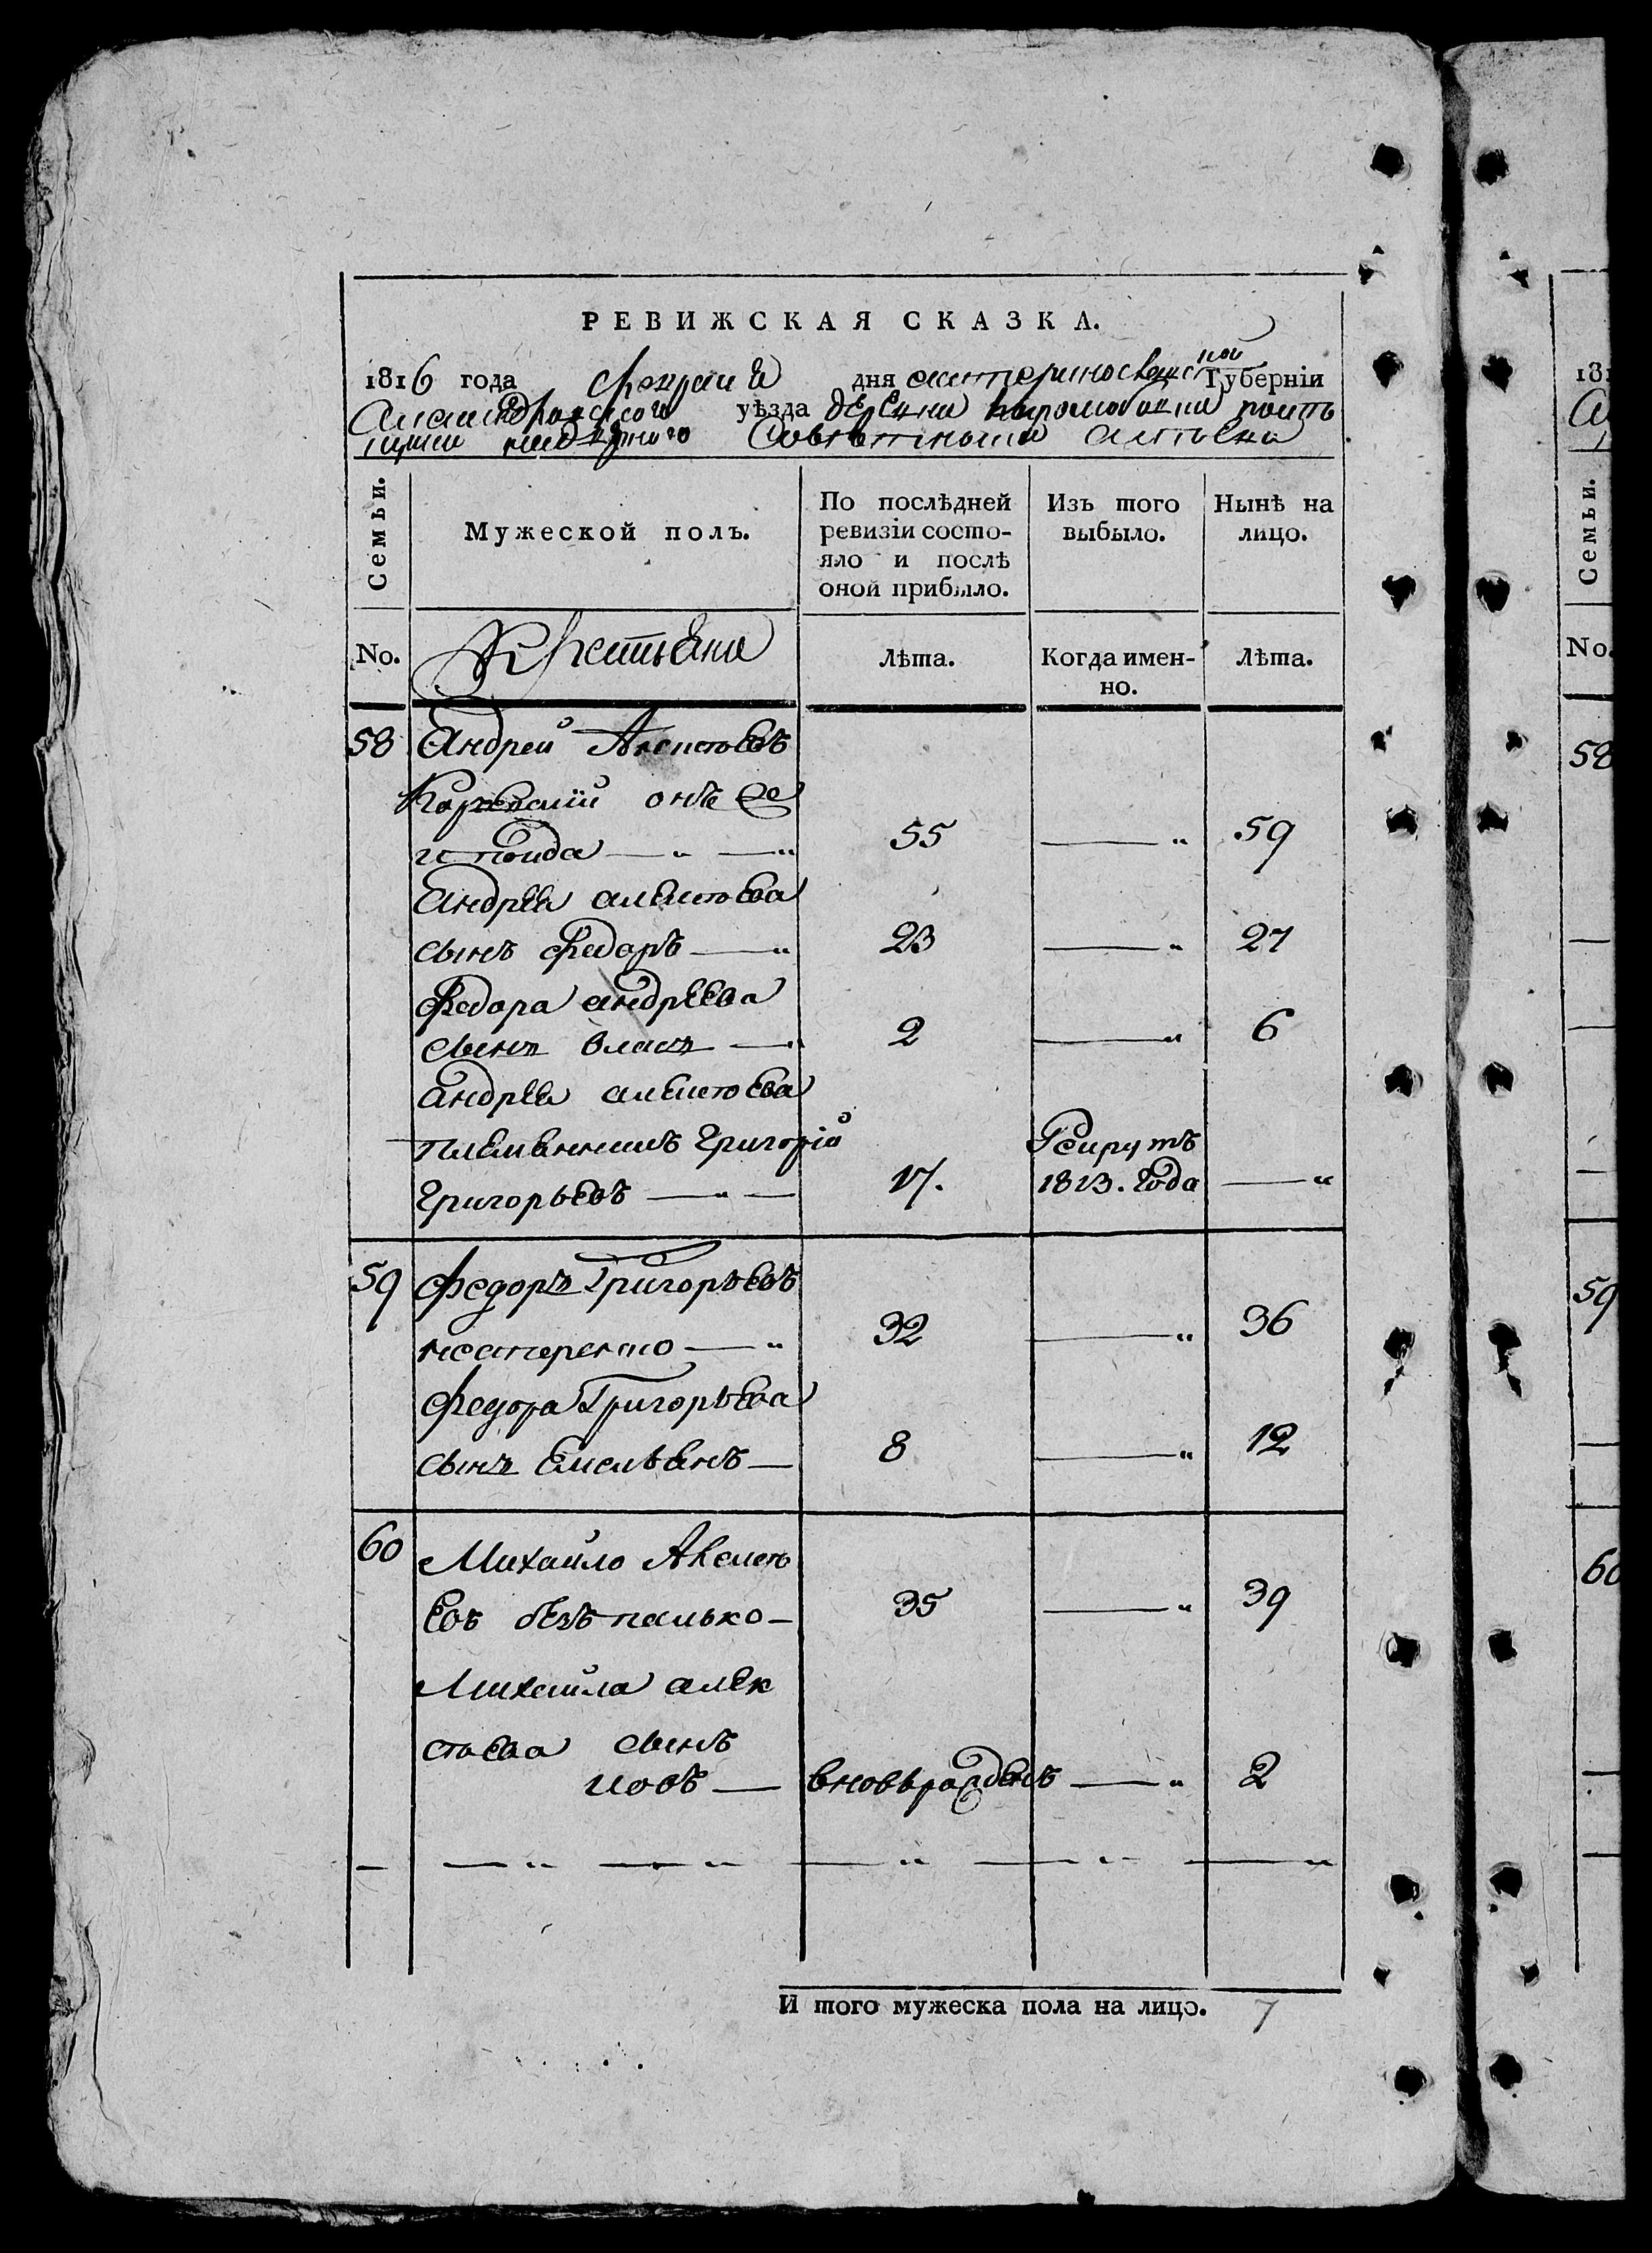 РЕВИЖСКАЯ СКАЗКА.
1816 года февраля дня екатеринославской Губерніи
Александровскаго уѣзда деревни
Семьи.
Мужеской полъ.
По послѣдней ревизіи состо-
яло и послѣ
оной прибыло.
Изъ того
выбыло.
Нынѣ на
лицо.
No.
Крестьяне
Лѣта.
Когда имен-
но.
Лѣта.
58 Андрей Алексѣевъ
онъ же
55 — „ 59
Андрея алексѣева
сынъ Федоръ — „ 23 — „ 27
Федора андреева
сынъ власъ — „ 2 — „ 6
Андрея алексѣева
племянникъ Григорій Рекрутъ
Григорьевъ — „ — 17. 1813. года — „
59 Федоръ Григорьевъ
— „ 32 — „ 36
Федора Григорьева
сынъ Емельянъ — 8 — „ 12
60 Михайло Алексѣ
евъ безпалько — 35 — „ 39
Михайла алек
сѣева сынъ
иовъ — вновьрожденъ — „ 2
И того мужеска пола на лицо. 7
181
Семьи.
No.
58
59
60